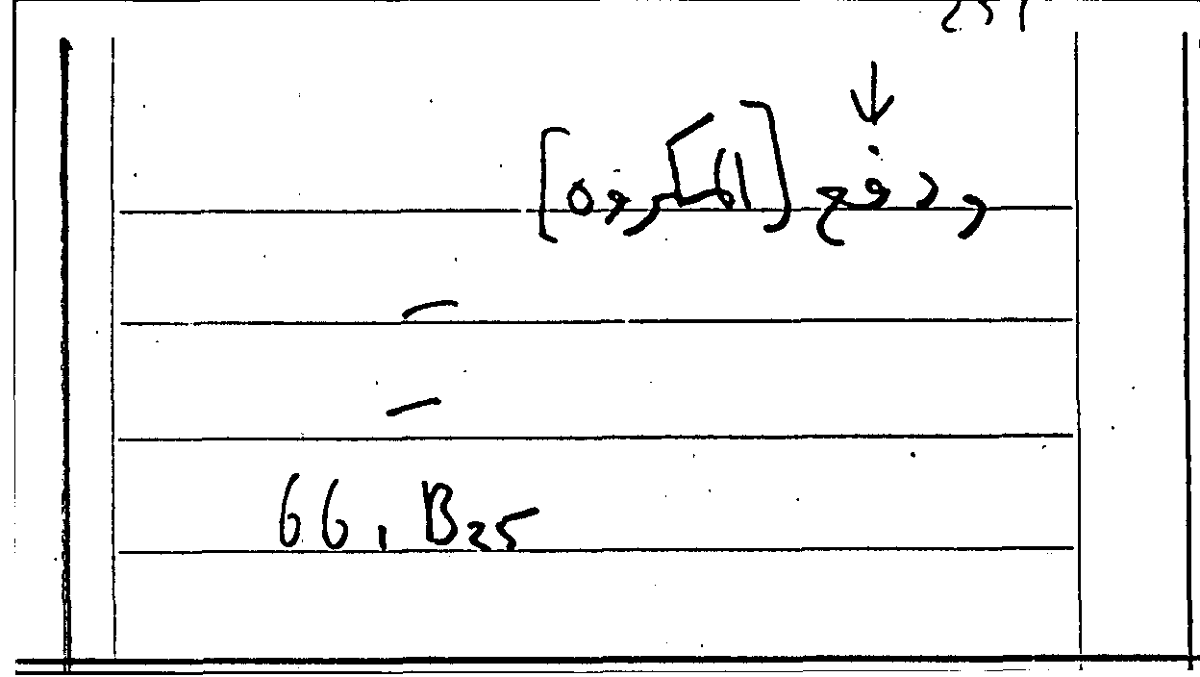 ودفع [المكروه]
66, B25